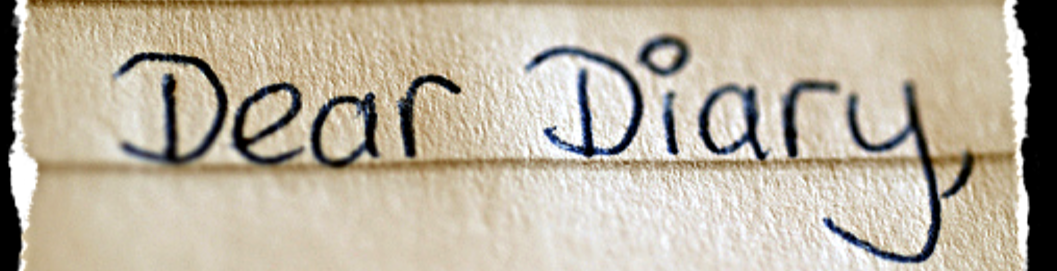 Dear Diary,